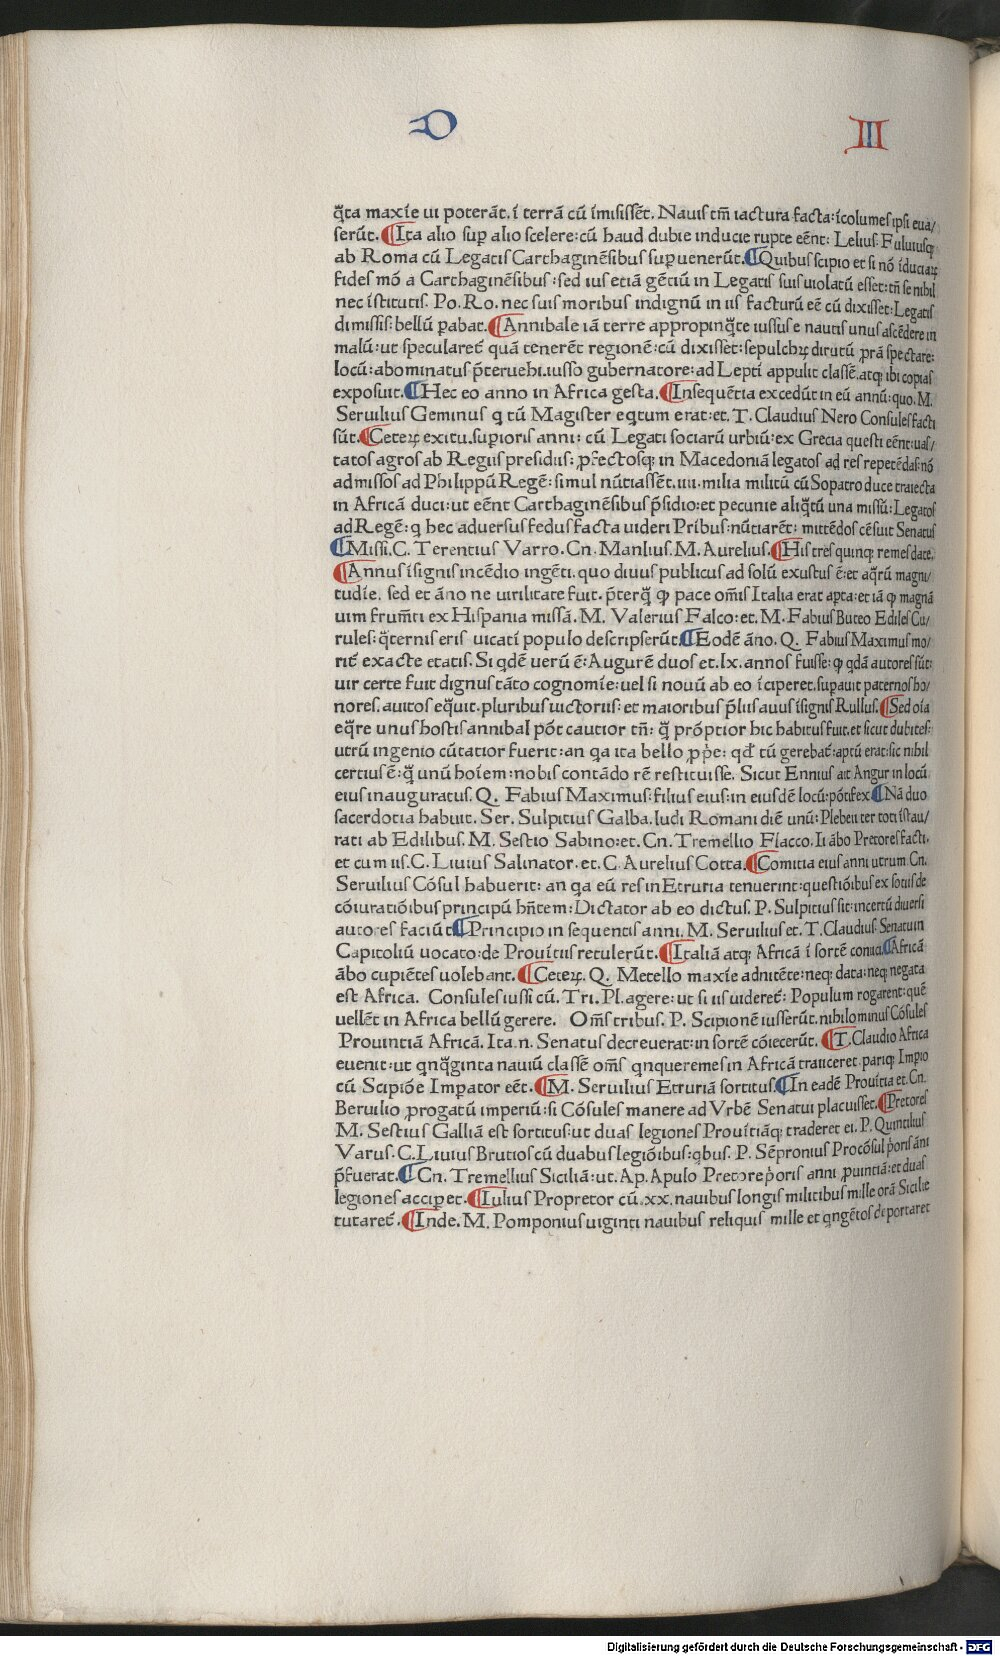 D III
q̃ta maxie ui poterãt. ĩ terrã cũ ĩmisissẽt. Nauis tm̃ iactura facta: ĩcolumes ipsi eua/
serũt. ¶Ita alio sup alio scelere: cũ haud dubie inducie rupte eẽnt: Lelius. Fuluiusq;
ab Roma cũ Legatis Carthaginẽsibus sup uenerũt. ¶Quibus scipio et si nõ ĩduciaꝝ
fides mõ a Carthaginẽsibus: sed ius etiã gẽtiũ in Legatis suis uiolatũ esset: tñ se nihil
nec ĩstitutis. Po. Ro. nec suis moribus indignũ in iis facturũ eẽ cũ dixisset: Legatis
dimissis: bellũ ꝑabat. ¶Annibale iã terre appropinq̃te iussus e nautis unus ascẽdere in
malũ: ut specularet̃ quã tenerẽt regionẽ: cũ dixisset: sepulchꝝ dirutũ prã spectare:
locũ: abominatus p̃teruehi. iusso gubernatore: ad Leptĩ appulit classẽ. atq; ibi copias
exposuit. ¶Hec eo anno in Africa gesta. ¶Insequẽtia excedũt in eũ annũ: quo. M.
Seruilius Geminus q tũ Magister eqtum erat: et. T. Claudius Nero Consules facti
sũt. ¶Ceteꝝ exitu. superioris anni: cũ Legati sociarũ urbiũ: ex Grecia questi eẽnt: uas/
tatos agros ab Regiis presidiis: ꝓfectosq; in Macedoniã legatos ad res repetẽdas: nõ
admissos ad Philippũ Regẽ: simul nũtiassẽt. iiii. milia militũ cũ Sopatro duce traiecta
in Africã duci: ut eẽnt Carthaginẽsibus p̃sidio: et pecunie aliq̃tũ una missũ: Legatos
ad Regẽ: q hec aduersus fedus facta uideri Prĩbus: nũtiarẽt: mittẽdos cẽsuit Senatus
¶Missi. C. Terentius Varro. Cn. Manlius. M. Aurelius. ¶His tres quinq; remes date.
¶Annus ĩsignis incẽdio ingẽti. quo diuus publicus ad solũ exustus ẽ: et aq̃rũ magni/
tudĩe. sed et ãno ne uirilitate fuit. p̃terq̃ ꝙ pace om̃is Italia erat apta: et iã ꝙ magnã
uim frum̃ti ex Hispania missã. M. Valerius Falco: et. M. Fabius Buteo Ediles Cu/
rules: q̃ternis eris uicatĩ populo descripserũt. ¶Eodẽ ãno. Q. Fabius Maximus mo/
rit̃ exacte etatis. Si qdẽ uerũ ẽ: Augurẽ duos et. lx. annos fuisse: ꝙ qdã autores sũt:
uir certe fuit dignus tãto cognomĩe: uel si nouũ ab eo ĩciperet. supauit paternos ho/
nores. auitos eq̃uit. pluribus uictoriis: et maioribus p̃liis auus ĩsignis Rullus. ¶Sed oĩa
eq̃re unus hostis annibal põt cautior tñ: q̃ prõptior hic habitus fuit. et sicut dubites:
utrũ ingenio cũtatior fuerit: an qa ita bello ꝓpĩe: qd̃ tũ gerebat̃: aptũ erat: sic nihil
certius ẽ: q̃ unũ hoĩem: nobis contãdo rẽ restituisse. Sicut Ennius ait Angur in locũ
eius inauguratus. Q. Fabius Maximus: filius eius: in eiusdẽ locũ: põtifex ¶Nã duo
sacerdotia habuit. Ser. Sulpitius Galba. ludi Romani diẽ unũ: Plebeii ter toti ĩstau/
rati ab Edilibus. M. Sestio Sabino: et. Cn. Tremellio Flacco. Ii ãbo Pretores facti.
et cum iis. C. Liuius Salinator. et. C. Aurelius Cotta. ¶Comitia eius anni utrum Cn.
Seruilius Cõsul habuerit: an qa eũ res in Etruria tenuerint: questiõibus ex sotiis de
cõiuratiõibus principũ hñtem: Dictator ab eo dictus. P. Sulpitius sit: incertũ diuersi
autores faciũt ¶Principio in sequentis anni. M. Seruilius et. T. Claudius. Senatu in
Capitoliũ uocato: de Prouĩtiis retulerũt. ¶Italiã atq; Africã ĩ sortẽ coniici. ¶Africã
ãbo cupiẽtes uolebant. ¶Ceteꝝ. Q. Metello maxie adnitẽte: neq; data: neq; negata
est Africa. Consules iussi cũ. Tri. Pl. agere: ut si iis uideret̃: Populum rogarent: quẽ
uellẽt in Africa bellũ gerere. Om̃s tribus. P. Scipionẽ iusserũt. nihilominus Cõsules
Prouintiã Africã. Ita. n. Senatus decreuerat: in sortẽ cõiecerũt. ¶T. Claudio Africa
euenit: ut qnq̃ginta nauiũ classẽ om̃s qnqueremes in Africã traiiceret. pariq; Impio
cũ Scipiõe Impator eẽt. ¶M. Seruilius Etruriã sortitus. ¶In eadẽ Prouĩtia et. Cn.
Beruilio ꝓrogatũ imperiũ: si Cõsules manere ad Vrbẽ Senatui placuisset. ¶Pretores
M. Sestius Galliã est sortitus: ut duas legiones Prouĩtiãq; traderet ei. P. Quintilius
Varus. C. Liuius Brutios cũ duabus legiõibus: qbus. P. Sẽpronius Procõsul p̃oris ãni
p̃fuerat. ¶Cn. Tremellius Siciliã: ut. Ap. Apulo Pretore p̃oris anni ꝓuintiã: et duas
legiones acciperet. ¶Iulius Propretor cũ. xx. nauibus longis militibus mille orã Sicilie
tutaret̃. ¶Inde. M. Pomponius uiginti nauibus reliquis mille et qngẽtos deportaret
Digitalisierung gefördert durch die Deutsche Forschungsgemeinschaft - DFG